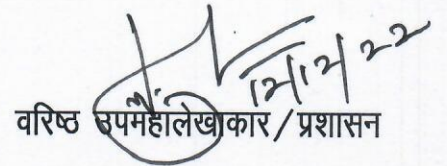 12/12/22
वरिष्ठ उपमहालेखाकार / प्रशासन